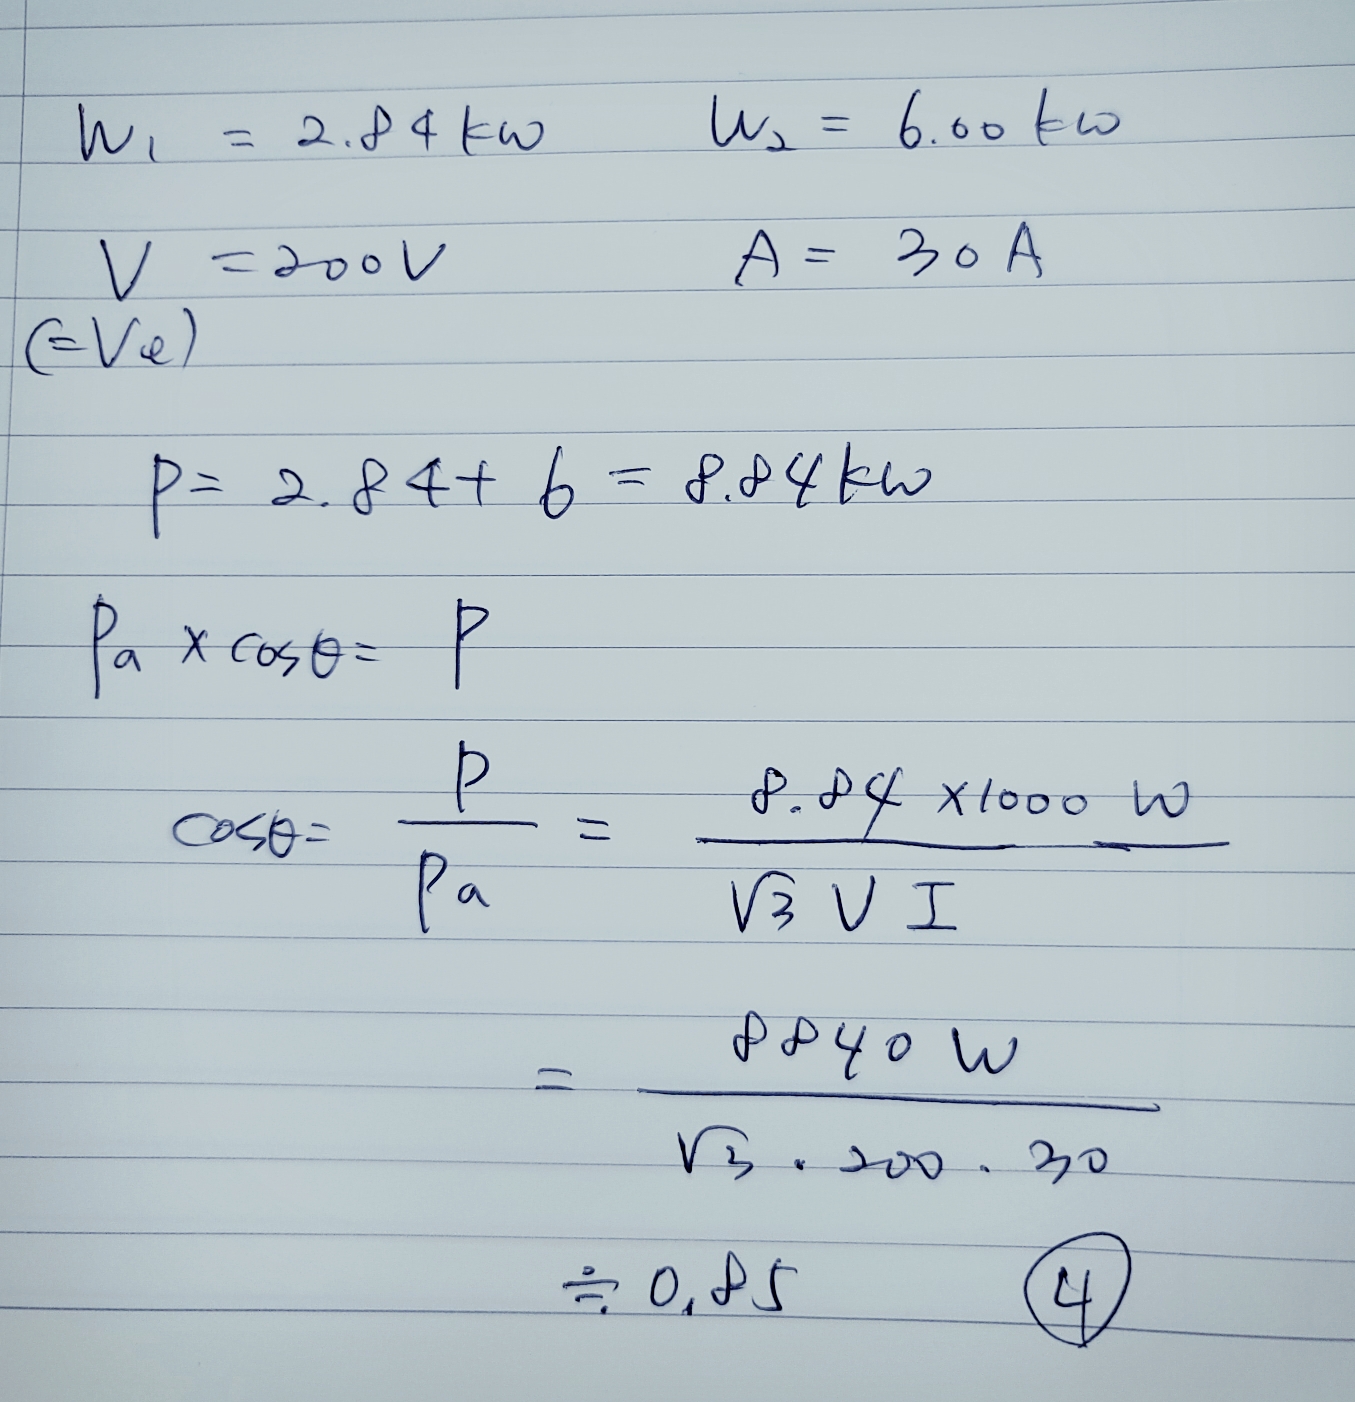 W₁ = 2.84 kW W₂ = 6.00 kW
V = 200V A = 30 A
(=Vℓ)
P = 2.84 + 6 = 8.84 kW
Pa × cosθ = P
cosθ = P/Pa = 8.84 ×1000 W / √3 V I
= 8840 W / √3 . 200 . 30
≒ 0.85 ④